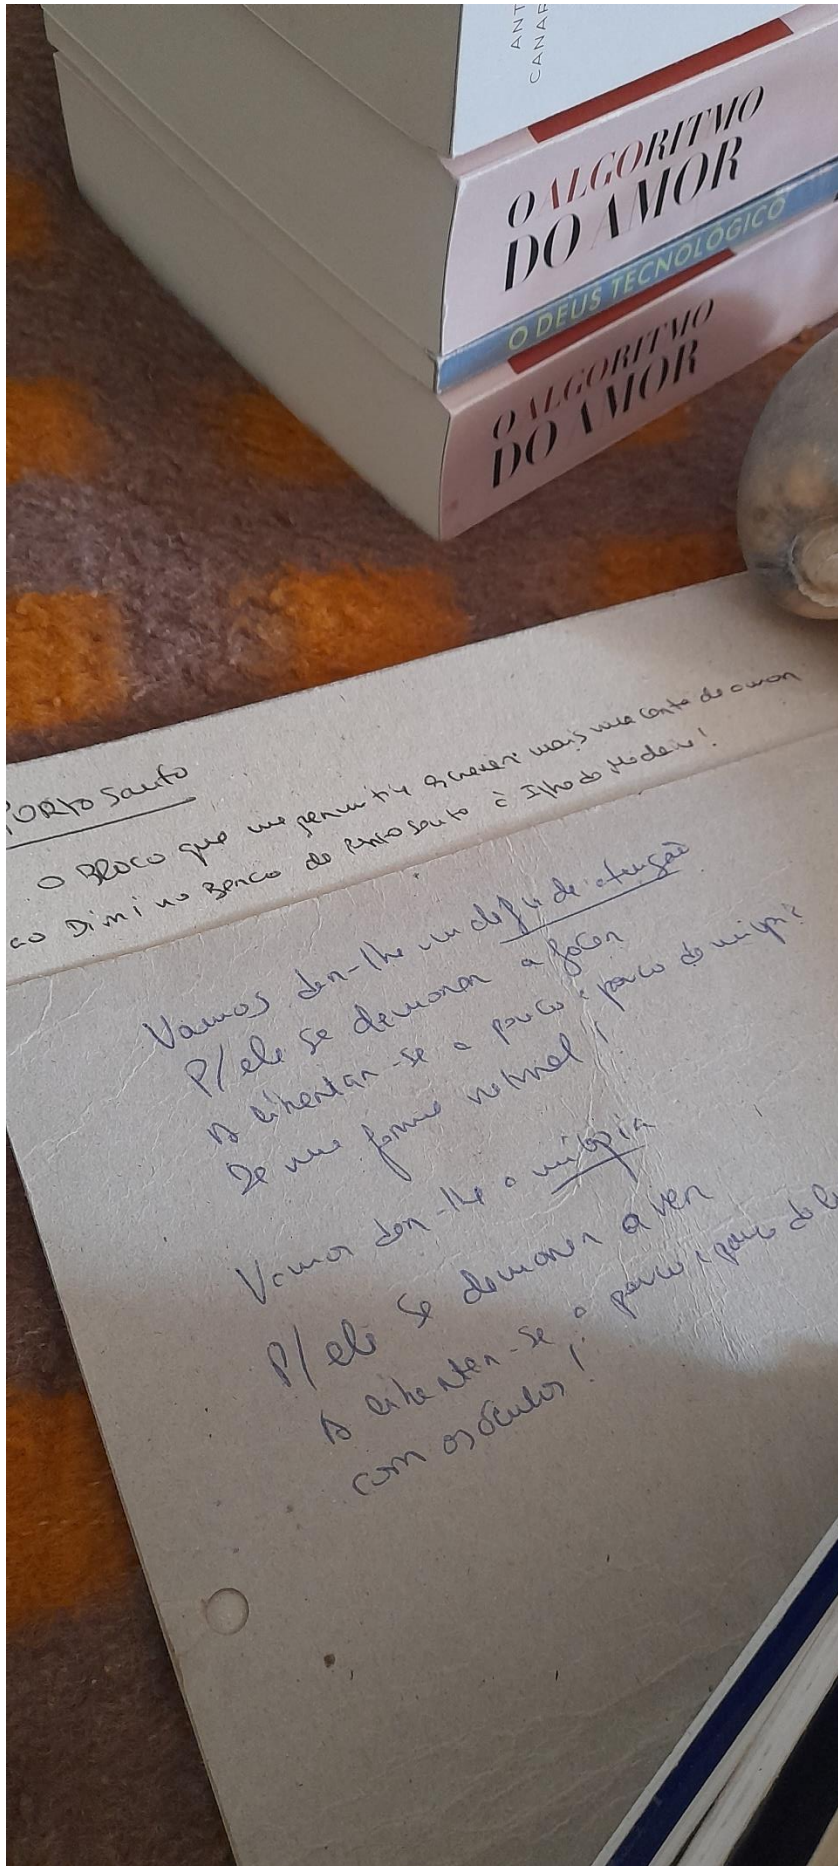 ANT
CANAR
O ALGORITMO
DO AMOR
O DEUS TECNOLÓGICO
O ALGORITMO
DO AMOR
PORTO Santo
O Bloco que me permitiu escrever mais uma carta de amor
ao Dimi no Banco do Porto Santo à Ilha da Madeira!
Vamos dar-lhe um défice de atenção
P/ ele se demorar a focar
A libertar-se a pouco e pouco da miopia
De uma forma natural!
Vamos dar-lhe a miopia
P/ ele se demorar a ver
A libertar-se a pouco e pouco
com os óculos!